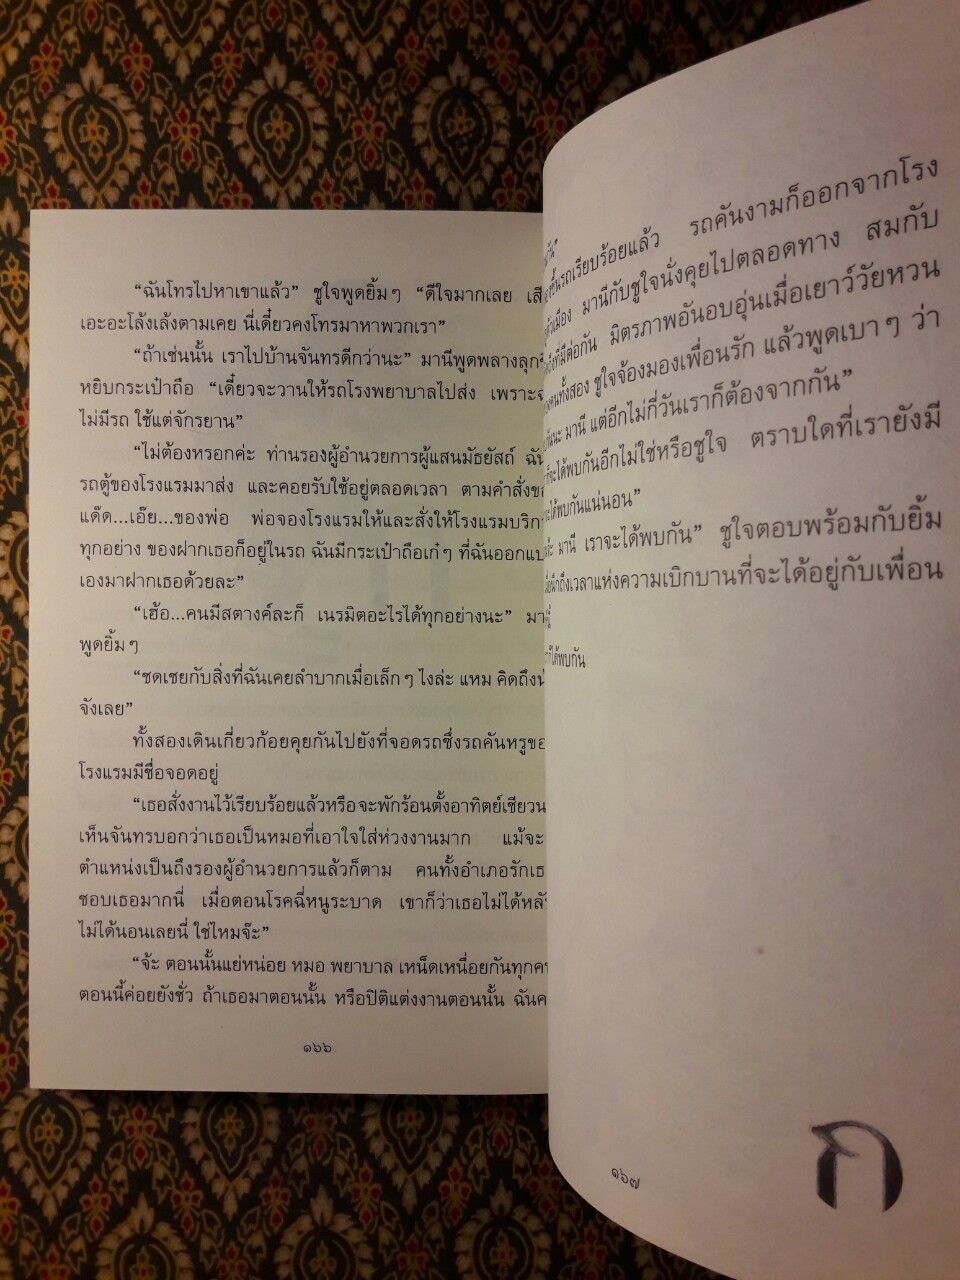 “ฉันโทรไปหาเขาแล้ว” ชูใจพูดยิ้มๆ “ดีใจมากเลย
เอะอะโล้งเล้งตามเคย นี่เดี๋ยวคงโทรมาหาพวกเรา”
“ถ้าเช่นนั้น เราไปบ้านจันทรดีกว่านะ” มานีพูดพลาง
หยิบกระเป๋าถือ “เดี๋ยวจะวานให้รถโรงพยาบาลไปส่ง เพราะ
ไม่มีรถ ใช้แต่จักรยาน”
“ไม่ต้องหรอกค่ะ ท่านรองผู้อำนวยการผู้แสนมัธยัสถ์
รถตู้ของโรงแรมมาส่ง และคอยรับใช้อยู่ตลอดเวลา ตามคำสั่ง
แด๊ด...เอ๊ย...ของพ่อ พ่อจองโรงแรมให้และสั่งให้โรงแรม
ทุกอย่าง ของฝากเธอก็อยู่ในรถ ฉันมีกระเป๋าถือเก๋ๆ ที่ฉัน
เองมาฝากเธอด้วยละ”
“เฮ้อ...คนมีสตางค์ละก็ เนรมิตอะไรได้ทุกอย่างนะ”
พูดยิ้มๆ
“ชดเชยกับสิ่งที่ฉันเคยลำบากเมื่อเล็กๆ ไงล่ะ แหม คิดถึง
จังเลย”
ทั้งสองเดินเกี่ยวก้อยคุยกันไปยังที่จอดรถซึ่งรถคันหรู
โรงแรมมีชื่อจอดอยู่
“เธอสั่งงานไว้เรียบร้อยแล้วหรือจะพักร้อนตั้งอาทิตย์เชียว
เห็นจันทรบอกว่าเธอเป็นหมอที่เอาใจใส่ห่วงงานมาก แม้จะ
ตำแหน่งเป็นถึงรองผู้อำนวยการแล้วก็ตาม คนทั้งอำเภอรัก
ชอบเธอมากนี่ เมื่อตอนโรคฉี่หนูระบาด เขาก็ว่าเธอไม่ได้
ไม่ได้นอนเลยนี่ ใช่ไหมจ๊ะ”
“จ้ะ ตอนนั้นแย่หน่อย หมอ พยาบาล เหน็ดเหนื่อยกัน
ตอนนี้ค่อยยังชั่ว ถ้าเธอมาตอนนั้น หรือปิติแต่งงานตอนนั้น
๑๖๖
ขึ้นรถเรียบร้อยแล้ว รถคันงามก็ออกจากโรง
มานีกับชูใจนั่งคุยไปตลอดทาง สมกับ
ที่มีต่อกัน มิตรภาพอันอบอุ่นเมื่อเยาว์วัยหวน
คนทั้งสอง ชูใจจ้องมองเพื่อนรัก แล้วพูดเบาๆ ว่า
มานี แต่อีกไม่กี่วันเราก็ต้องจากกัน”
จะได้พบกันอีกไม่ใช่หรือชูใจ ตราบใดที่เรายังมี
จะได้พบกันแน่นอน”
มานี เราจะได้พบกัน” ชูใจตอบพร้อมกับยิ้ม
ถึงเวลาแห่งความเบิกบานที่จะได้อยู่กับเพื่อน
ได้พบกัน
๑๖๗
ก